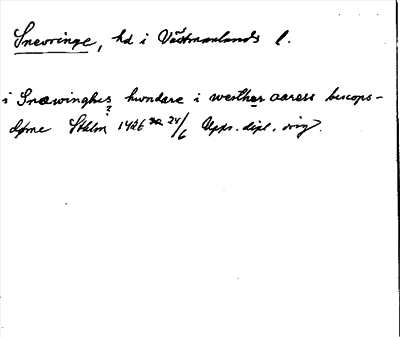 Snevringe, hd i Västmanlands l.
i Snæwinghes hwndare i westher aaress biscops-
døme Sthlm 1426 24/6 Upps. dipl. orig.